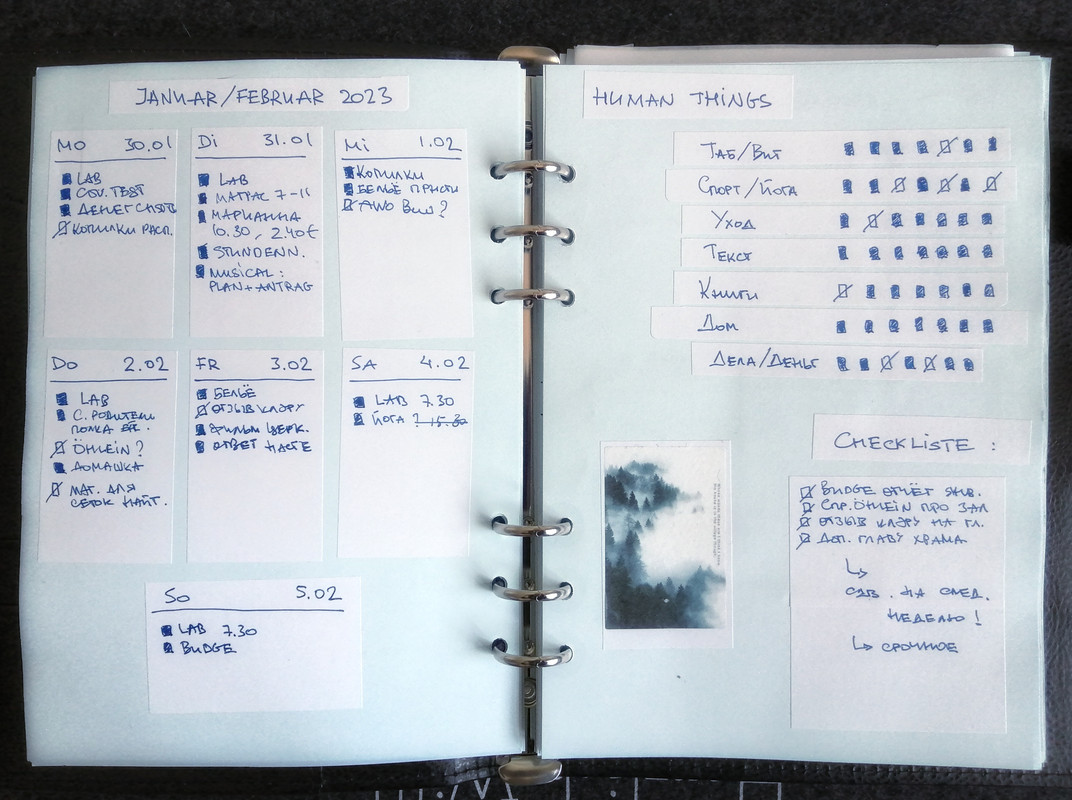 JANUAR/FEBRUAR 2023
Mo 30.01
LAB
COV. TEST
ДЕНЕГ СНЯТЬ
КОПИЛКИ РАСП.
Di 31.01
LAB
МАТРАС 7-11
МАРИАННА
10.30, 2.40€
STUNDENN.
MUSICAL:
PLAN+ANTRAG
Mi 1.02
КОПИЛКИ
БЕЛЬЁ
AWO ?
Do 2.02
LAB
С. РОДИТЕЛИ
ПОЛКА
ÖHLEIN?
ДОМАШКА
МАТ. ДЛЯ
СЕТОК НАЙТ.
FR 3.02
БЕЛЬЁ
ОТЗЫВ КЛЭРУ
ФИЛЬМ ЦЕРК.
ОТВЕТ НАСТЕ
SA 4.02
LAB 7.30
ЙОГА ? 15.30
So 5.02
LAB 7.30
BUDGE
HUMAN THINGS
ТАБ/ВИТ
СПОРТ/ЙОГА
УХОД
ТЕКСТ
КНИГИ
ДОМ
ДЕЛА/ДЕНЬГ
CHECKLISTE :
BUDGE ОТЧЁТ ЯНВ.
СПР. ÖHLEIN ПРО ЗАЛ
ОТЗЫВ КЛЭРУ НА ГЛ.
ДОП. ГЛАВУ ХРАМА
↳
СДВ. НА СЛЕД.
НЕДЕЛЮ!
↳ СРОЧНОЕ